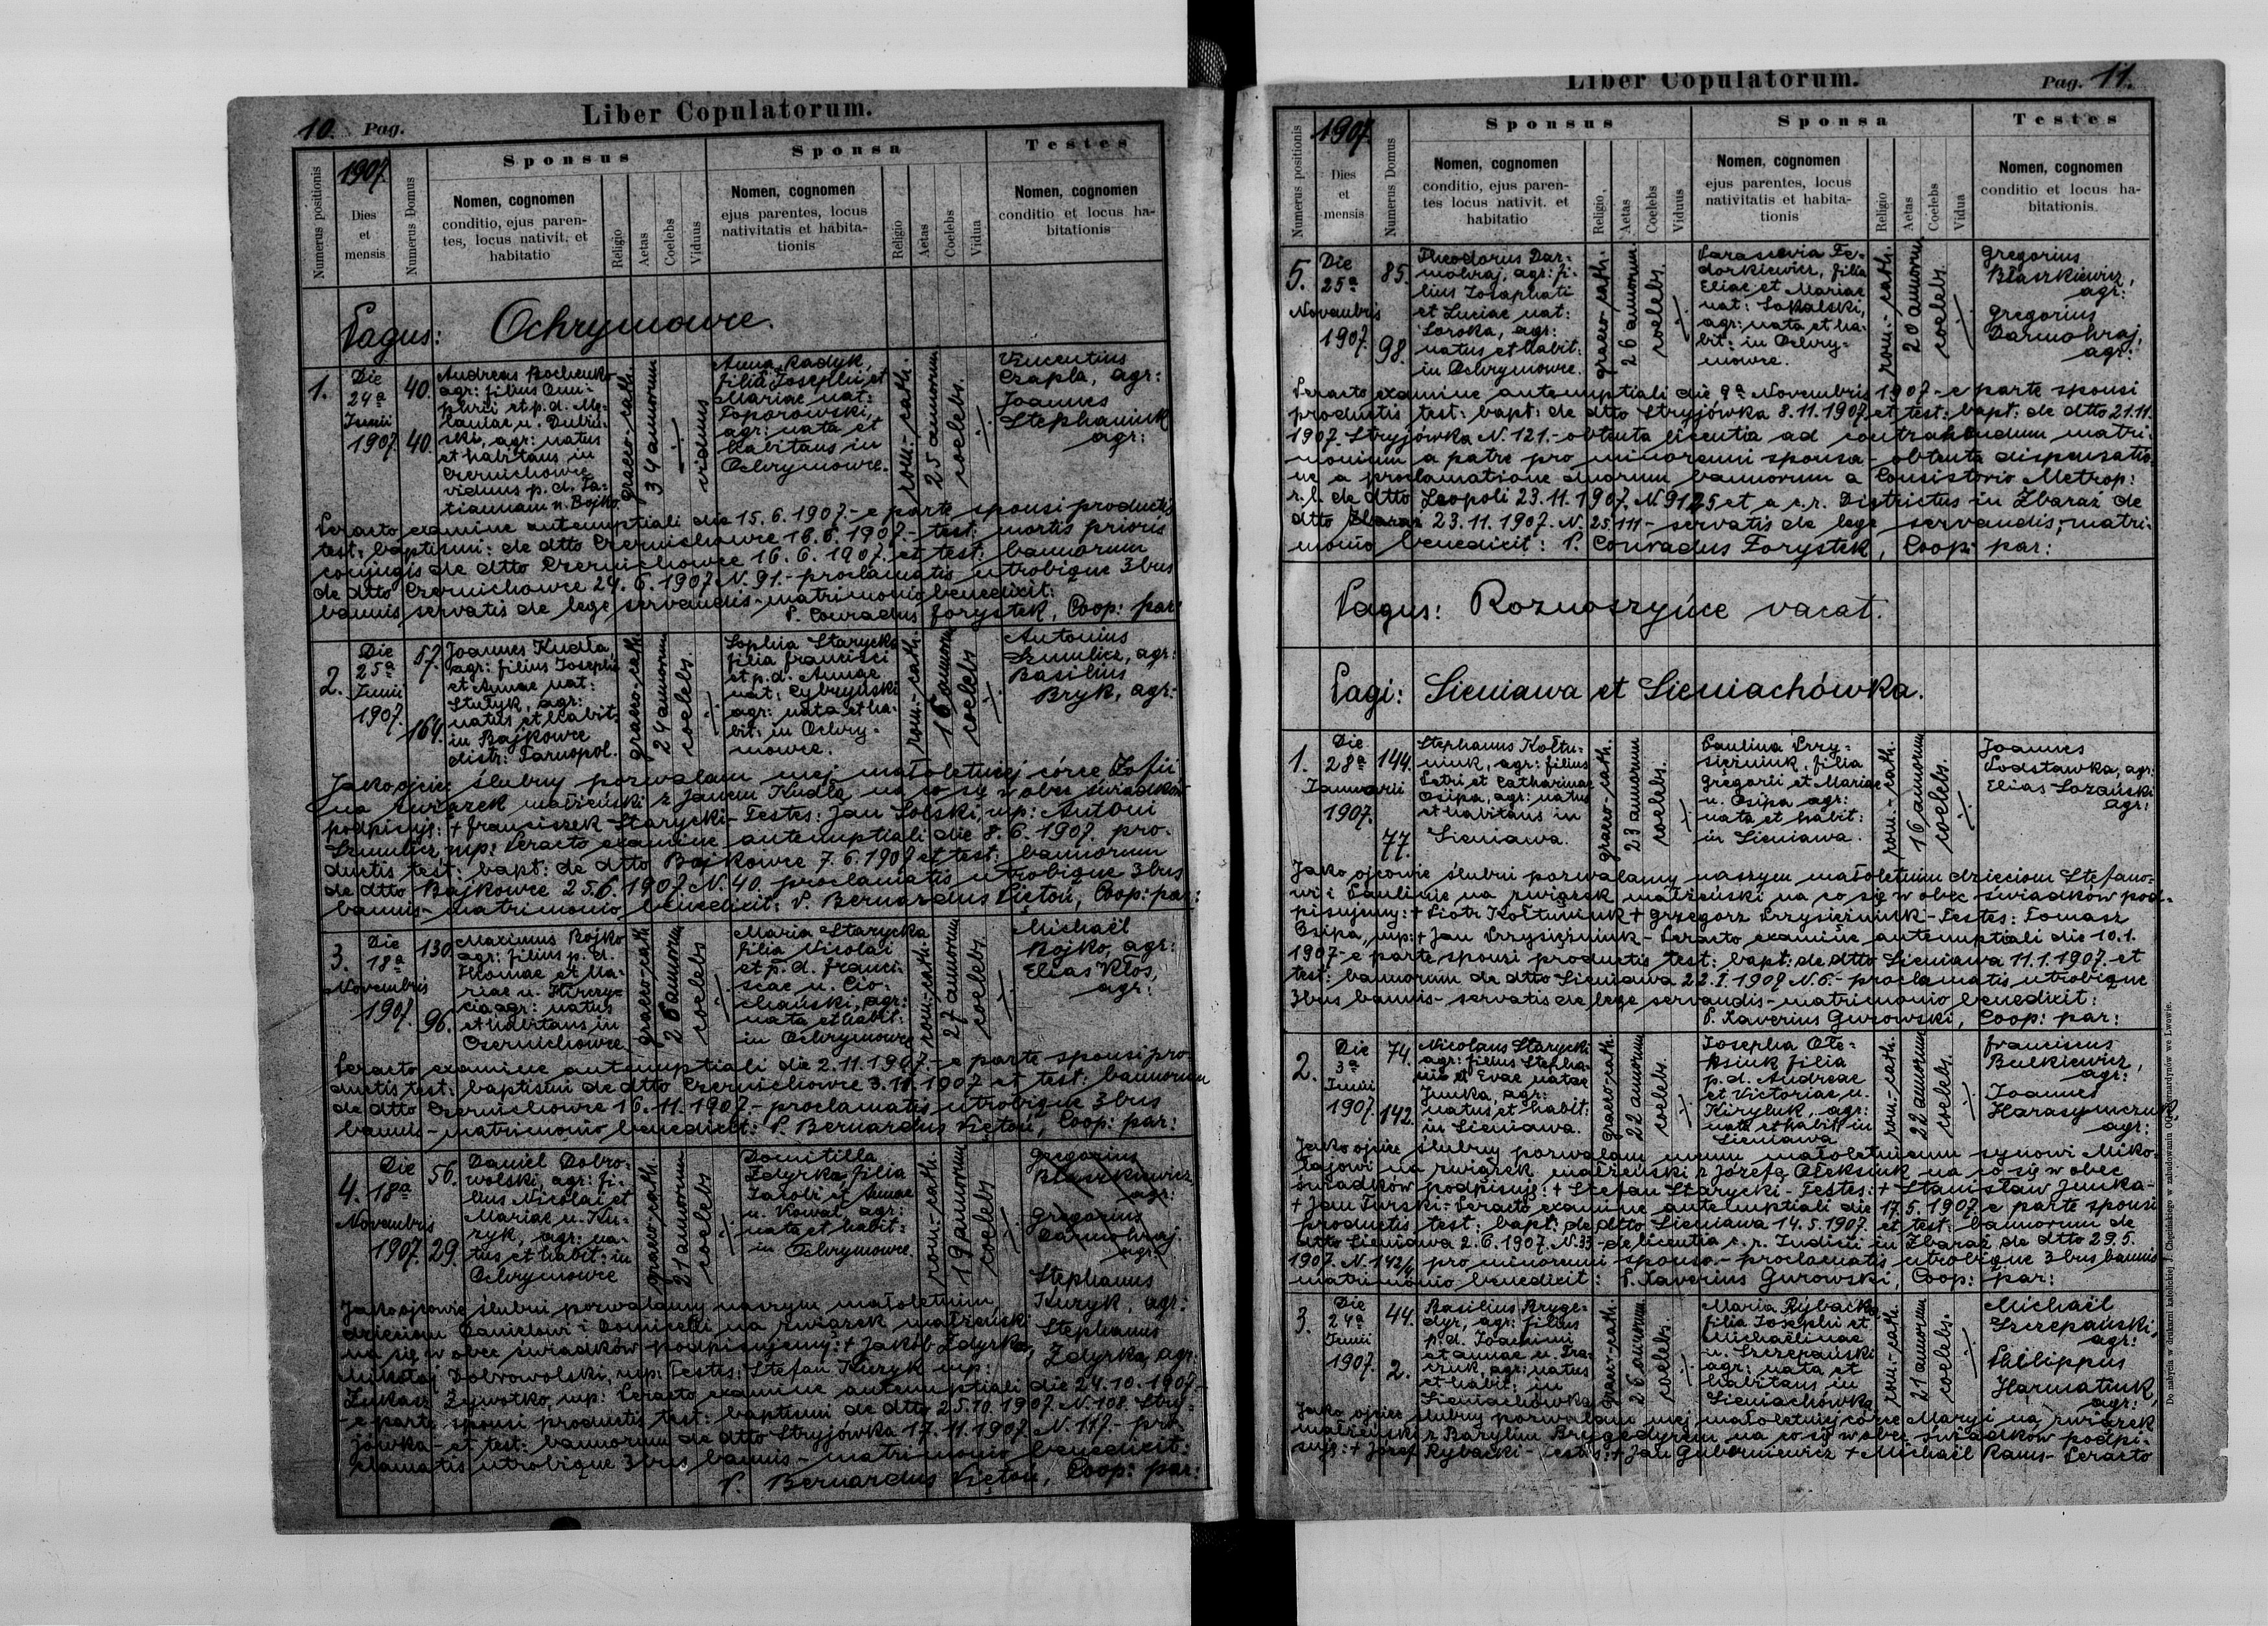 10. Pag.
Liber Copulatorum.
Numerus positionis
1907.
Dies
et
mensis
Numerus Domus
Sponsus
Nomen, cognomen
conditio, ejus paren-
tes, locus nativit. et
habitatio
Religio
Aetas
Coelebs
Viduus
Sponsa
Nomen, cognomen
ejus parentes, locus
nativitatis et habita-
tionis
Religio
Aetas
Coelebs
Vidua
Testes
Nomen, cognomen
conditio et locus ha-
bitationis
Pagus: Ochrymowce.
1.
Die
24a
Junii
1907.
40.
40.
Andreas Bochenko
agr: filius Onu-
phrii et p. d. Me-
laniae n. Dubin-
ski, agr: natus
et habitans in
Czernichowce
viduus p. d. Ta-
tiannam n. Bojko.
graeco-cath.
34 annorum
viduus
Anna Radyk,
filia Josephi et
Mariae nat:
Toporowski,
agr: nata et
habitans in
Ochrymowce.
rom.-cath.
25 annorum
coelebs.
Vincentius
Czapla, agr:
Joannes
Stephaniuk
agr:
Peracto examine antenuptiali die 15.6.1907.- e parte sponsi productis
test: baptismi: de dtto Czernichowce 16.6.1907.- test: mortis prioris
conjugis de dtto Czernichowce 16.6.1907. et test: bannorum
de dtto Czernichowce 24.6.1907 N. 91.- proclamatis utrobique 3bus
bannis, servatis de lege servandis - matrimonio benedixit:
P. Conradus Forystek, Coop: par:
2.
Die
25a
Junii
1907.
57.
164.
Joannes Kudła,
agr: filius Josephi
et Annae nat:
Stutyk, agr:
natus et habit:
in Bajkowce
distr: Tarnopol.
graeco-cath.
24 annorum
coelebs.
Sophia Starycka
filia Francisci
et p. d. Annae
nat: Cybryński
agr: nata et ha-
bit: in Ochry-
mowce.
rom.-cath.
16 annorum
coelebs
Antonius
Szmulicz, agr:
Basilius
Bryk, agr:
Jako ojciec ślubny pozwalam mej małoletniej córce Zofii
na związek małżeński z Janem Kudłą na co się w obec świadków
podpisuję: + Franciszek Starycki - Testes: Jan Solski, mp: Antoni
Szmulicz, mp: Peracto examine antenuptiali die 8.6.1907. pro-
ductis test: bapt: de dtto Bajkowce 7.6.1907 et test: bannorum
de dtto Bajkowce 25.6.1907. N. 40. proclamatis utrobique 3bus
bannis - matrimonio benedixit: P. Bernardus Piętoń, Coop: par:
3.
Die
18a
Novembris
1907.
130.
96.
Maximus Bojko
agr: filius p. d.
Thomae et Ma-
riae n.
agr: natus
et habitans in
Czernichowce
graeco-cath
26 annorum
coelebs
Maria Starycka
filia Nicolai
et p. d. Franci-
scae n. Cio-
chański, agr:
nata et habit:
in Ochrymowce
rom.-cath.
27 annorum
coelebs.
Michaël
Bojko, agr:
Elias Kłos,
agr:
Peracto examine antenuptiali die 2.11.1907.- e parte sponsi pro-
ductis test: baptismi de dtto Czernichowce 3.11.1907 et test: bannorum
de dtto Czernichowce 16.11.1907.- proclamatis utrobique 3bus
bannis - matrimonio benedixit: P. Bernardus Piętoń, Coop: par:
4.
Die
18a
Novembris
1907.
56.
29.
Daniel Dobro-
wolski, agr: fi-
lius Nicolai et
Mariae n. Ku-
ryk, agr: na-
tus et habit: in
Ochrymowce
graeco-cath.
21 annorum
coelebs
Domitilla
Zdyrka, filia
Jacobi et Annae
n. Kowal, agr:
nata et habit:
in Ochrymowce.
rom.-cath.
19 annorum
coelebs
Gregorius
Błaszkiewicz
agr:
Gregorius
Darmohraj.
agr:
Stephanus
Kuryk, agr:
Stephanus
Zdyrka, agr:
Jako ojcowie ślubni pozwalamy naszym małoletnim
dzieciom Danielowi i Domicelli na związek małżeński
na się w obec świadków podpisujemy: + Jakób Zdyrka,
Mikołaj Dobrowolski, mp: Testes: Stefan Kuryk mp:
Łukasz Żywotko, mp: Peracto examine antenuptiali die 24.10.1907.-
- e parte sponsi productis test: baptismi de dtto 25.10.1907. N. 108. Stry-
jówka - et test: bannorum de dtto Stryjówka 17.11.1907. N. 117.- pro-
clamatis utrobique 3bus bannis - matrimonio benedixit:
P. Bernardus Piętoń, Coop: par:
Liber Copulatorum.
Pag. 11.
Numerus positionis
1907.
Dies
et
mensis
Numerus Domus
Sponsus
Nomen, cognomen
conditio, ejus paren-
tes locus nativit. et
habitatio
Religio,
Aetas
Coelebs
Viduus
Sponsa
Nomen, cognomen
ejus parentes, locus
nativitatis et habita-
tionis
Religio
Aetas
Coelebs
Vidua
Testes
Nomen, cognomen
conditio et locus ha-
bitationis
5.
Die
25a
Novembris
1907.
85.
98.
Theodorus Dar-
mohraj, agr: fi-
lius Josaphati
et Luciae nat:
Soroka, agr:
natus et habit:
in Ochrymowce.
graeco-cath.
26 annorum
coelebs.
Parascevia Fe-
dorkiewicz, filia
Eliae et Mariae
nat: Sakalski,
agr: nata et ha-
bit: in Ochry-
mowce.
rom.-cath.
20 annorum
coelebs.
Gregorius
Błaszkiewicz,
agr:
Gregorius
Darmohraj,
agr:
Peracto examine antenuptiali die 9a Novembris 1907 - e parte sponsi
productis test: bapt: de dtto Stryjówka 8.11.1907. et test: bapt: de dtto 21.11.
1907. Stryjówka N. 121.- obtenta licentia ad contrahendum matri-
monium a patre pro minorenni sponsa - obtenta dispensatio-
ne a proclamatione duorum bannorum a Consistorio Metrop:
r. l. de dtto Leopoli 23.11.1907. N 9125 et a c. r. Districtus in Zbaraż de
dtto Zbaraż 23.11.1907. N. 25.111 - servatis de lege servandis, matri-
monio benedixit: P. Conradus Forystek, Coop: par:
Pagus: Roznoszyńce vacat.
Pagi: Sieniawa et Sieniachówka.
1.
Die
28a
Januarii
1907.
144.
77.
Stephanus Kołtu-
niuk, agr: filius
Petri et Catharinae
Osipa, agr: natus
et habitans in
Sieniawa.
graeco-cath.
23 annorum
coelebs.
Paulina Przy-
siężniuk, filia
Gregorii et Mariae
n. Osipa agr:
nata et habit:
in Sieniawa.
rom.-cath.
16 annorum
coelebs.
Joannes
Podstawka, agr:
Elias Łozański
agr:
Jako ojcowie ślubni pozwalamy naszym małoletnim dzieciom Stefano-
wi i Paulinie na związek małżeński na co się w obec świadków pod-
pisujemy: + Piotr Kołtuniuk + Grzegorz Przysiężniuk - Testes: Tomasz
Osipa, mp: + Jan Przysiężniuk - Peracto examine antenuptiali die 10.1.
1907 - e parte sponsi productis test: bapt: de dtto Sieniawa 11.1.1907. et
test: bannorum de dtto Sieniawa 22.I.1907 N. 6.- proclamatis utrobique
3bus bannis - servatis de lege servandis - matrimonio benedixit:
P. Xaverius Gurowski, Coop: par:
2.
Die
3a
Junii
1907.
74.
142.
Nicolaus Starycki
agr: filius Stepha-
ni et Evae natae
Jumka, agr:
natus et habit:
in Sieniawa.
graeco-cath.
22 annorum
coelebs.
Josepha Ole-
ksiuk filia
p. d. Andreae
et Victoriae n.
Kiryluk, agr:
nata et habit: in
Sieniawa
rom.-cath.
22 annorum
coelebs.
Franciscus
Bulkiewicz,
agr:
Joannes
Harasymczuk
agr:
Jako ojciec ślubny pozwalam memu małoletniemu synowi Miko-
łajowi na związek małżeński z Józefą Ołeksiuk na co się w obec
świadków podpisuję: + Stefan Starycki - Testes: + Stanisław Jumka -
+ Jan Turski - Peracto examine antenuptiali die 17.5.1907. e parte sponsi
productis test: bapt: de dtto Sieniawa 14.5.1907. et test: bannorum de
dtto Sieniawa 2.6.1907. N. 33 - de licentia c. r. Judicii in Zbaraż de dtto 29.5.
1907. N. 142/6 pro minorenni sponsa - proclamatis utrobique 3bus bannis
matrimonio benedixit: P. Xaverius Gurowski, Coop: par:
3.
Die
24a
Junii
1907.
44.
2.
Basilius Bryge-
dyr, agr: filius
p. d. Joannis
et Annae n. Pra-
czuk, agr: natus
et habit: in
Sieniachówka
graeco-cath.
26 annorum
coelebs.
Maria Rybacka
filia Josephi et
Michaëlinae
n. Szczepański
agr: nata et
habitans in
Sieniachówka
rom.-cath.
21 annorum
coelebs.
Michaël
Szczepański,
agr:
Philippus
Harmatiuk,
agr:
Jako ojciec ślubny pozwalam mej małoletniej córce Maryi na związek
małżeński z Bazylim Brygedyrem na co się w obec świadków podpi-
suję: + Józef Rybacki - Testes: + Jan Guberniewicz + Michaël Kams - Peracto
Do nabycia w drukarni katolickiej J. Chęcińskiego w zabudowaniu OO. Bernardynów we Lwowie.